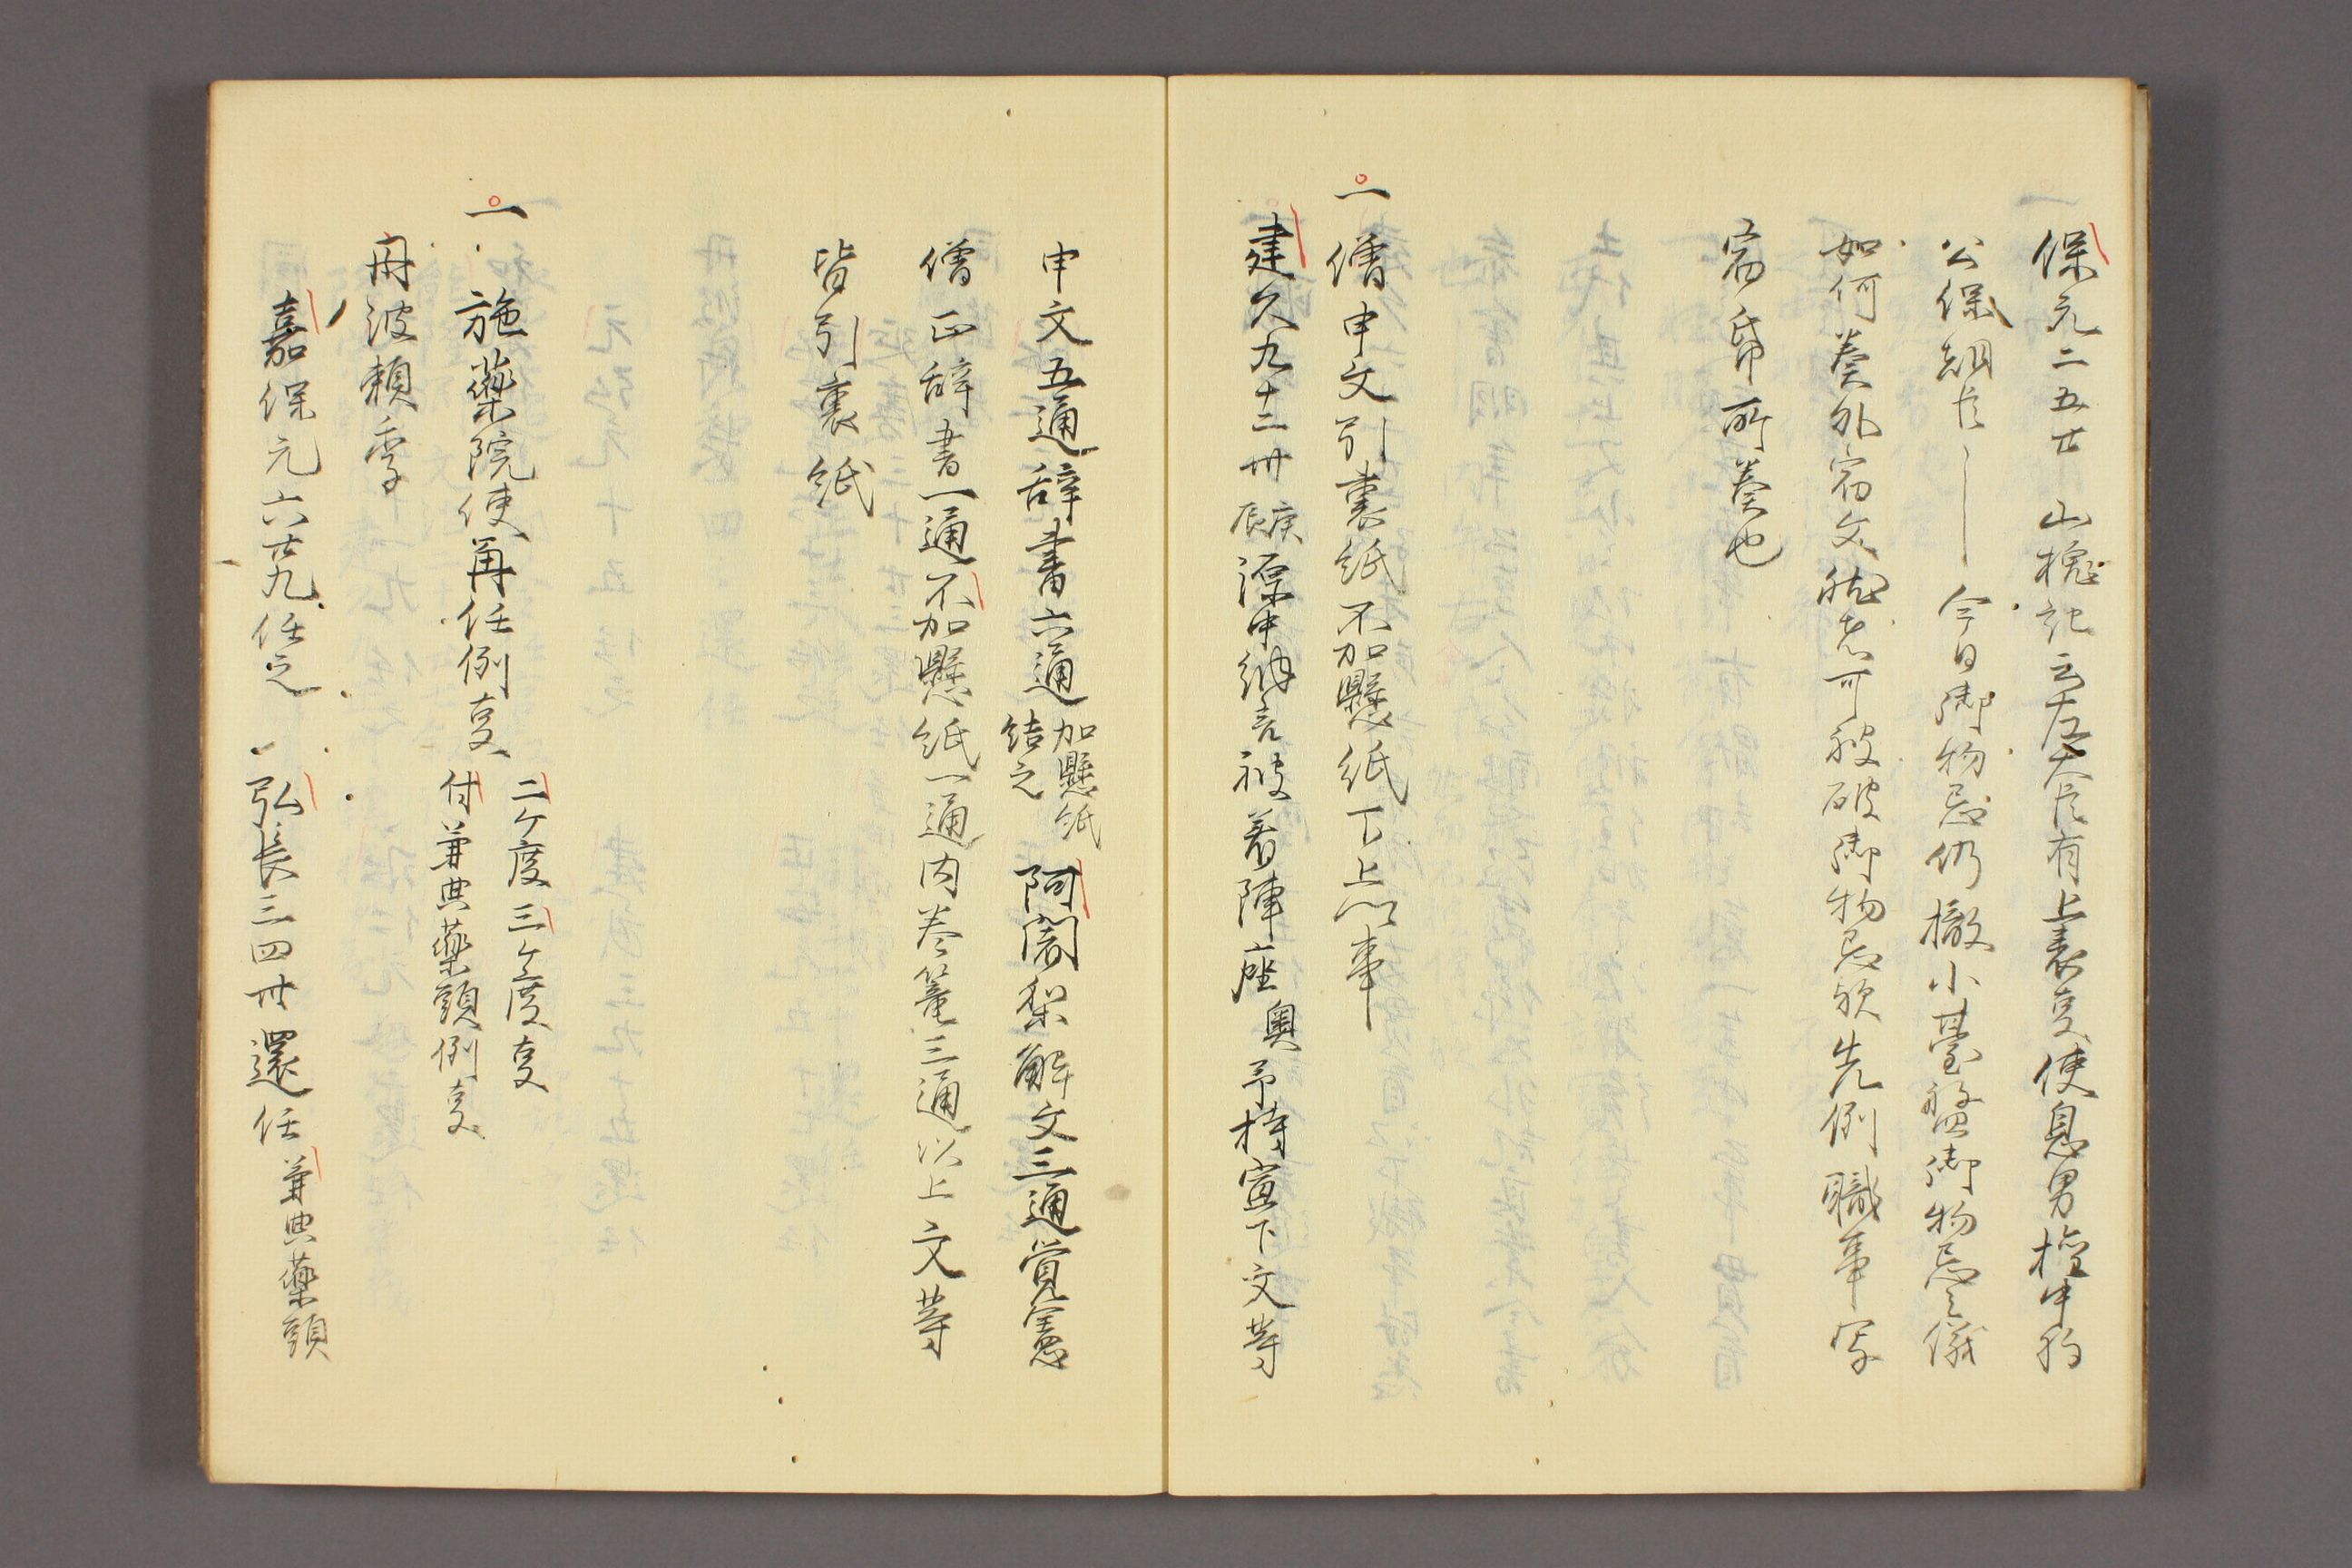 保元二五廿 山槐記云左大臣有上表事使息男権中将
公保朝臣――今日御物忌仍撤小臺盤御物忌之儀
如何奏外宿文哉者可被破御物忌歟先例職事寫
宿帋所奏也
一 僧申文引裏紙不加懸紙下上以事
建久九十二卅庚辰源中納言被着陣座奥予持宣下文等
申文五通辞書六通加懸紙結之 阿闍梨解文三通覚憲
僧正辞書一通不加懸紙一通内巻篭三通以上文等
皆引裏紙
一 施藥院使再任例事 二ケ度三ケ度事
付兼典藥頭例事
丹波頼季
嘉保元六廿九任之 弘長三四廿還任兼典藥頭